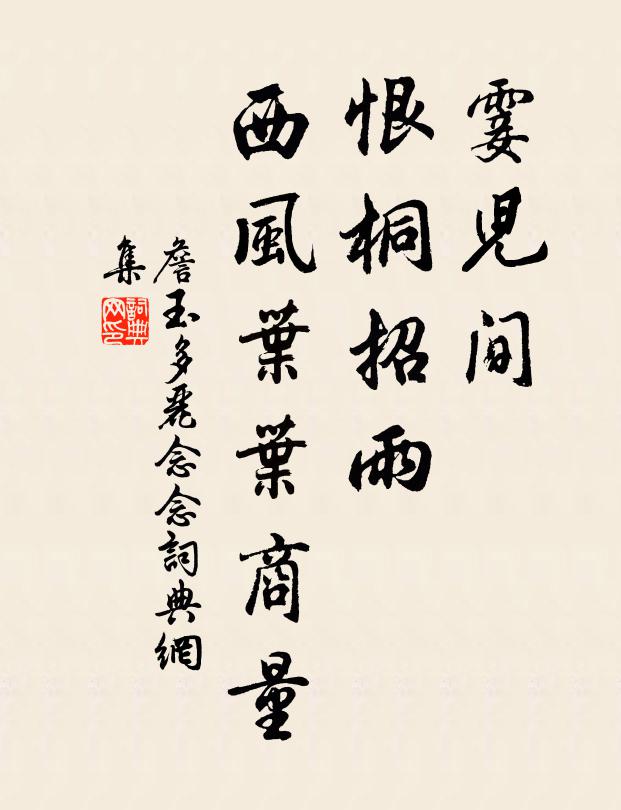 霎児間
恨桐招雨
西風葉葉商量
詹玉多麗念念詞典網
集
詞典
网印